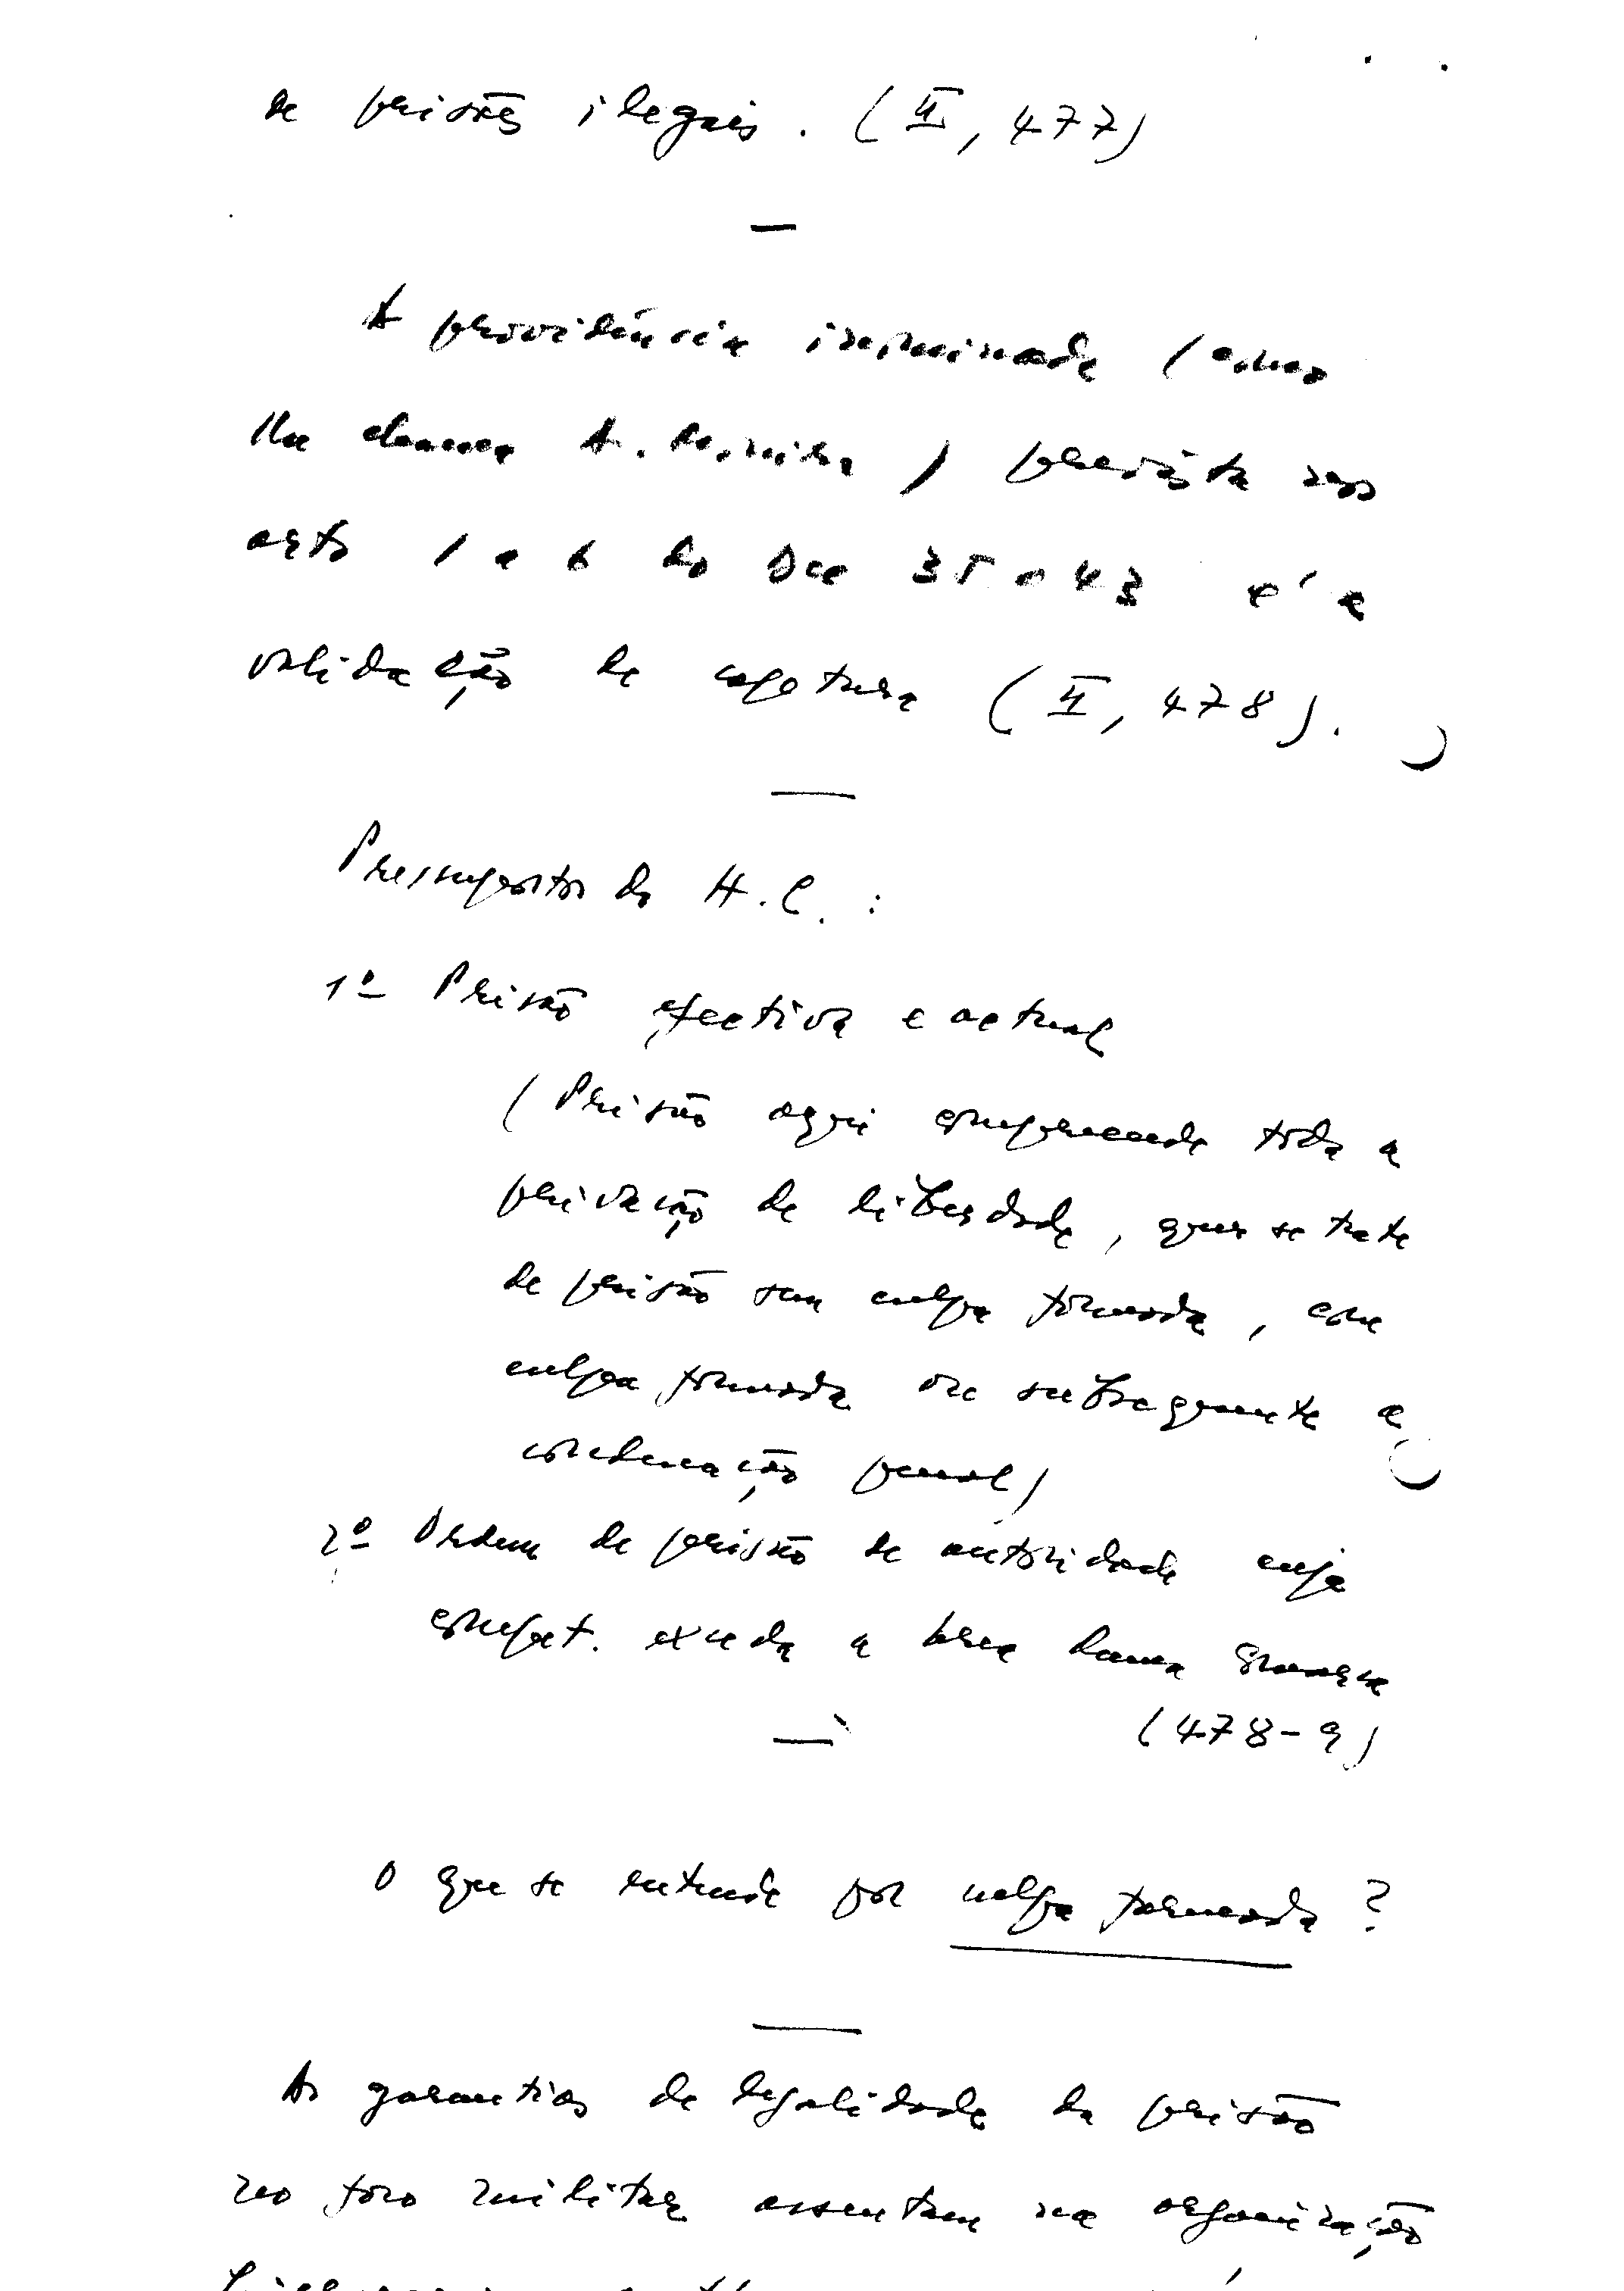 de prisões ilegais. (II, 477)
A providência inominada (como
lhe chama A. Carneiro) prevista nos
arts 1 a 6 do Dec 35043 é a
validação de captura (II, 478).
Pressupostos do H.C.:
1º Prisão efectiva e actual
(Prisão aqui compreende toda a
privação de liberdade, quer se trate
de prisão sem culpa formada, com
culpa formada ou subsequente a
condenação penal)
2º Ordem de prisão de autoridade cuja
compet. exceda a duma comarca
(478-9)
O que se entende por culpa formada?
As garantias de legalidade da prisão
no foro militar assentam na organização